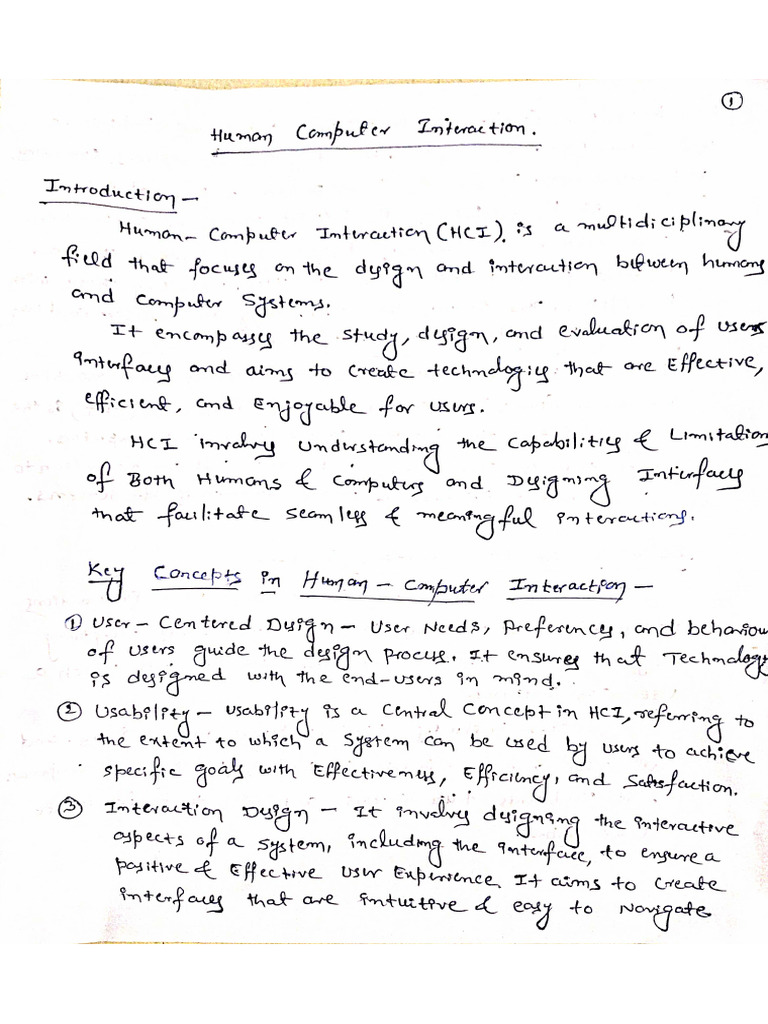 ①
Human Computer Interaction.
Introduction -
Human - Computer Interaction (HCI). is a multidiciplinary
field that focuses on the design and interaction between humans
and Computer Systems.
It encompasses the study, design, and evaluation of users
interfaces and aims to create technologies that are Effective,
efficient, and Enjoyable for users.
HCI involves understanding the Capabilities & Limitation
of Both Humans & Computers and Designing Interfaces
that facilitate seamless & meaningful interactions.
Key Concepts in Human - Computer Interaction -
① User - Centered Design - User Needs, Preferences, and behaviou
of users guide the design process. It ensures that Technology
is designed with the end-users in mind.
② Usability - usability is a Central Concept in HCI, referring to
the extent to which a System can be used by users to achieve
specific goals with Effectiveness, Efficiency, and Satisfaction.
③ Interaction Design - It involves designing the interactive
aspects of a system, including the interface, to ensure a
positive & Effective User Experience. It aims to Create
interfaces that are intuitive & easy to Navigate